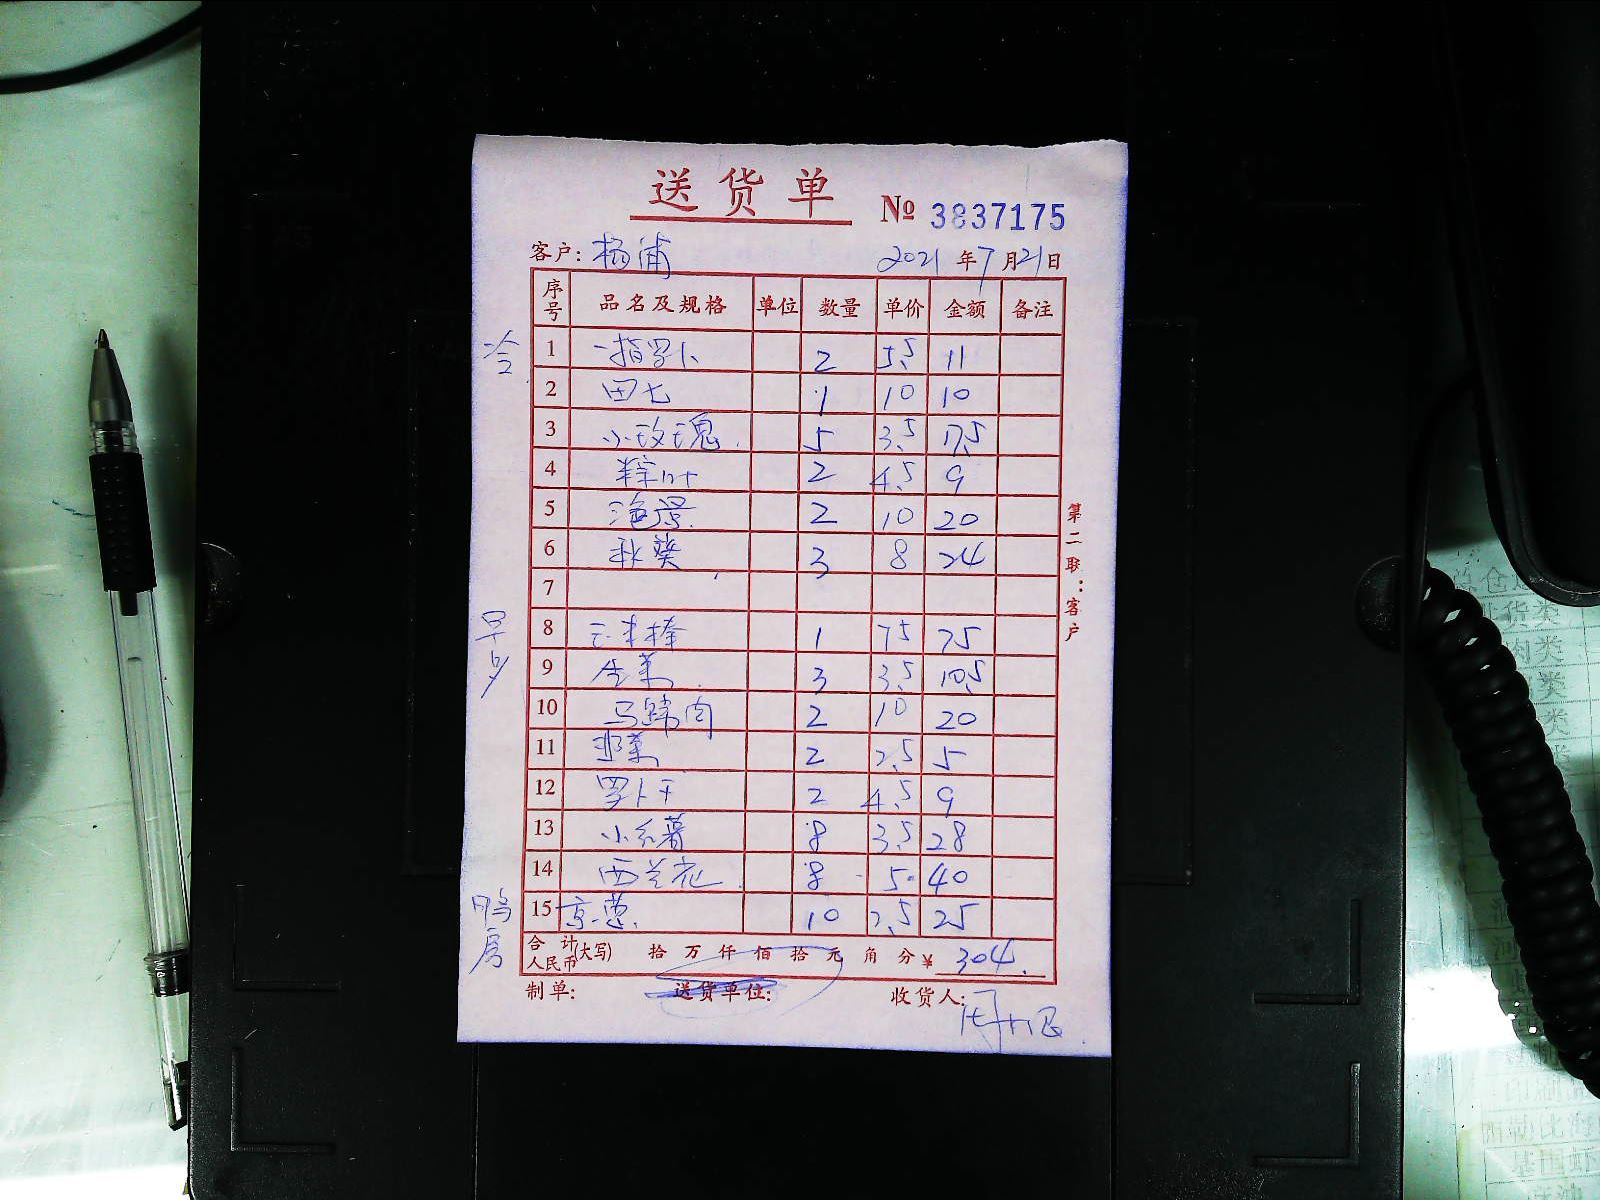 送货单 № 3837175
客户: 杨浦 2021 年 7 月 21 日
序号 品名及规格 单位 数量 单价 金额 备注
冷
1 一指罗卜 2 5.5 11
2 田七 1 10 10
3 小玫瑰 5 3.5 17.5
4 粽叶 2 4.5 9
5 2 10 20
6 秋葵 3 8 24
7
早点
8 玉米棒 1 75 75
9 生菜 3 3.5 10.5
10 马蹄肉 2 10 20
11 韭菜 2 2.5 5
12 罗卜干 2 4.5 9
13 小红薯 8 3.5 28
14 西兰花 8 5. 40
鸭房
15 京葱 10 2.5 25
合计人民币(大写) 拾 万 仟 佰 拾 元 角 分 ¥ 304.
制单: 送货单位: 收货人:
第二联:客户